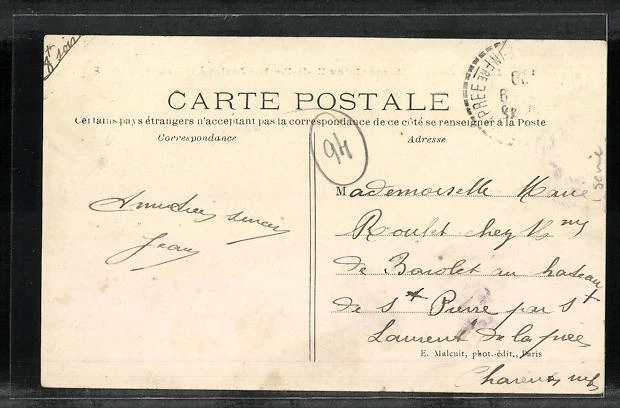 soir
CARTE POSTALE
Certains pays étrangers n'acceptant pas la correspondance de ce côté se renseigner à la Poste
Correspondance
Adresse
94
Amitiés
Jean
Mademoiselle Marie
Roulet chez Mme
de Barolet au hateau
de St Pierre par St
Laurent de la prée
E. Malcuit, phot.-édit., Paris